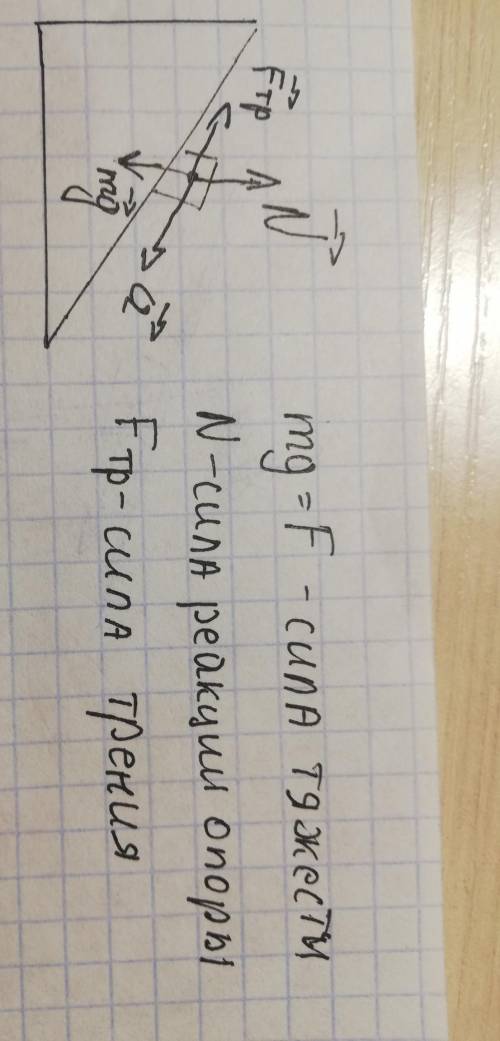 Fтр
N
mg
a
mg = F - сила тяжести
N - сила реакции опоры
Fтр - сила трения